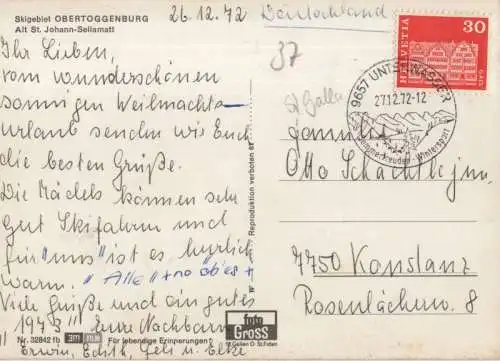 Skigebiet OBERTOGGENBURG
Alt St. Johann-Sellamatt
26.12.72
Ihr Lieben,
vom wunderschönen
sonnigen Weihnachts-
urlaub senden wir Euch
die besten Grüße.
Die Mädels können sehr
gut Skifahren und
für "uns" ist es herrlich
warm. "Alle"
Viele Grüße und ein gutes
1973 Eure Nachbarn
Erwin, Edith, Geli u. Elke
Nr. 32842 fb 3M Für lebendige Erinnerungen!
Reproduktion verboten
foto
Gross
St. Gallen O St. Fiden
Deutschland
37
St Gallen
HELVETIA
30
GAIS
9657 UNTERWASSER
27.12.72-12
Sommerfreuden-Wintersport
Familie
Otto Schächtle jun.
7750 Konstanz
Rosenlächerw. 8